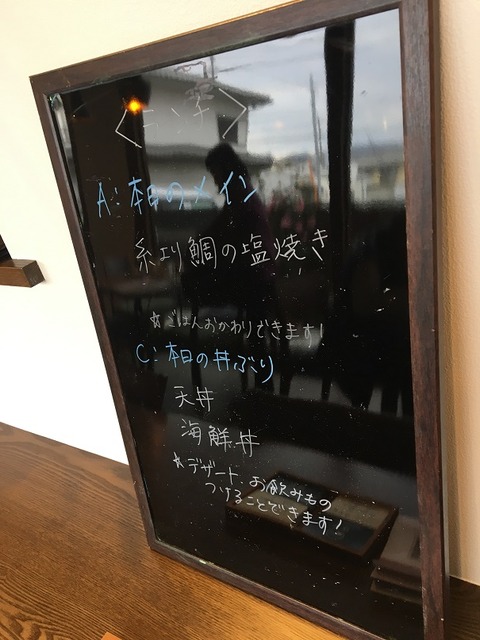 A: 本日のメイン
糸より鯛の塩焼き
☆ごはんおかわりできます!
C: 本日の丼ぶり
天丼
海鮮丼
☆デザート、お飲みもの
つけることできます!